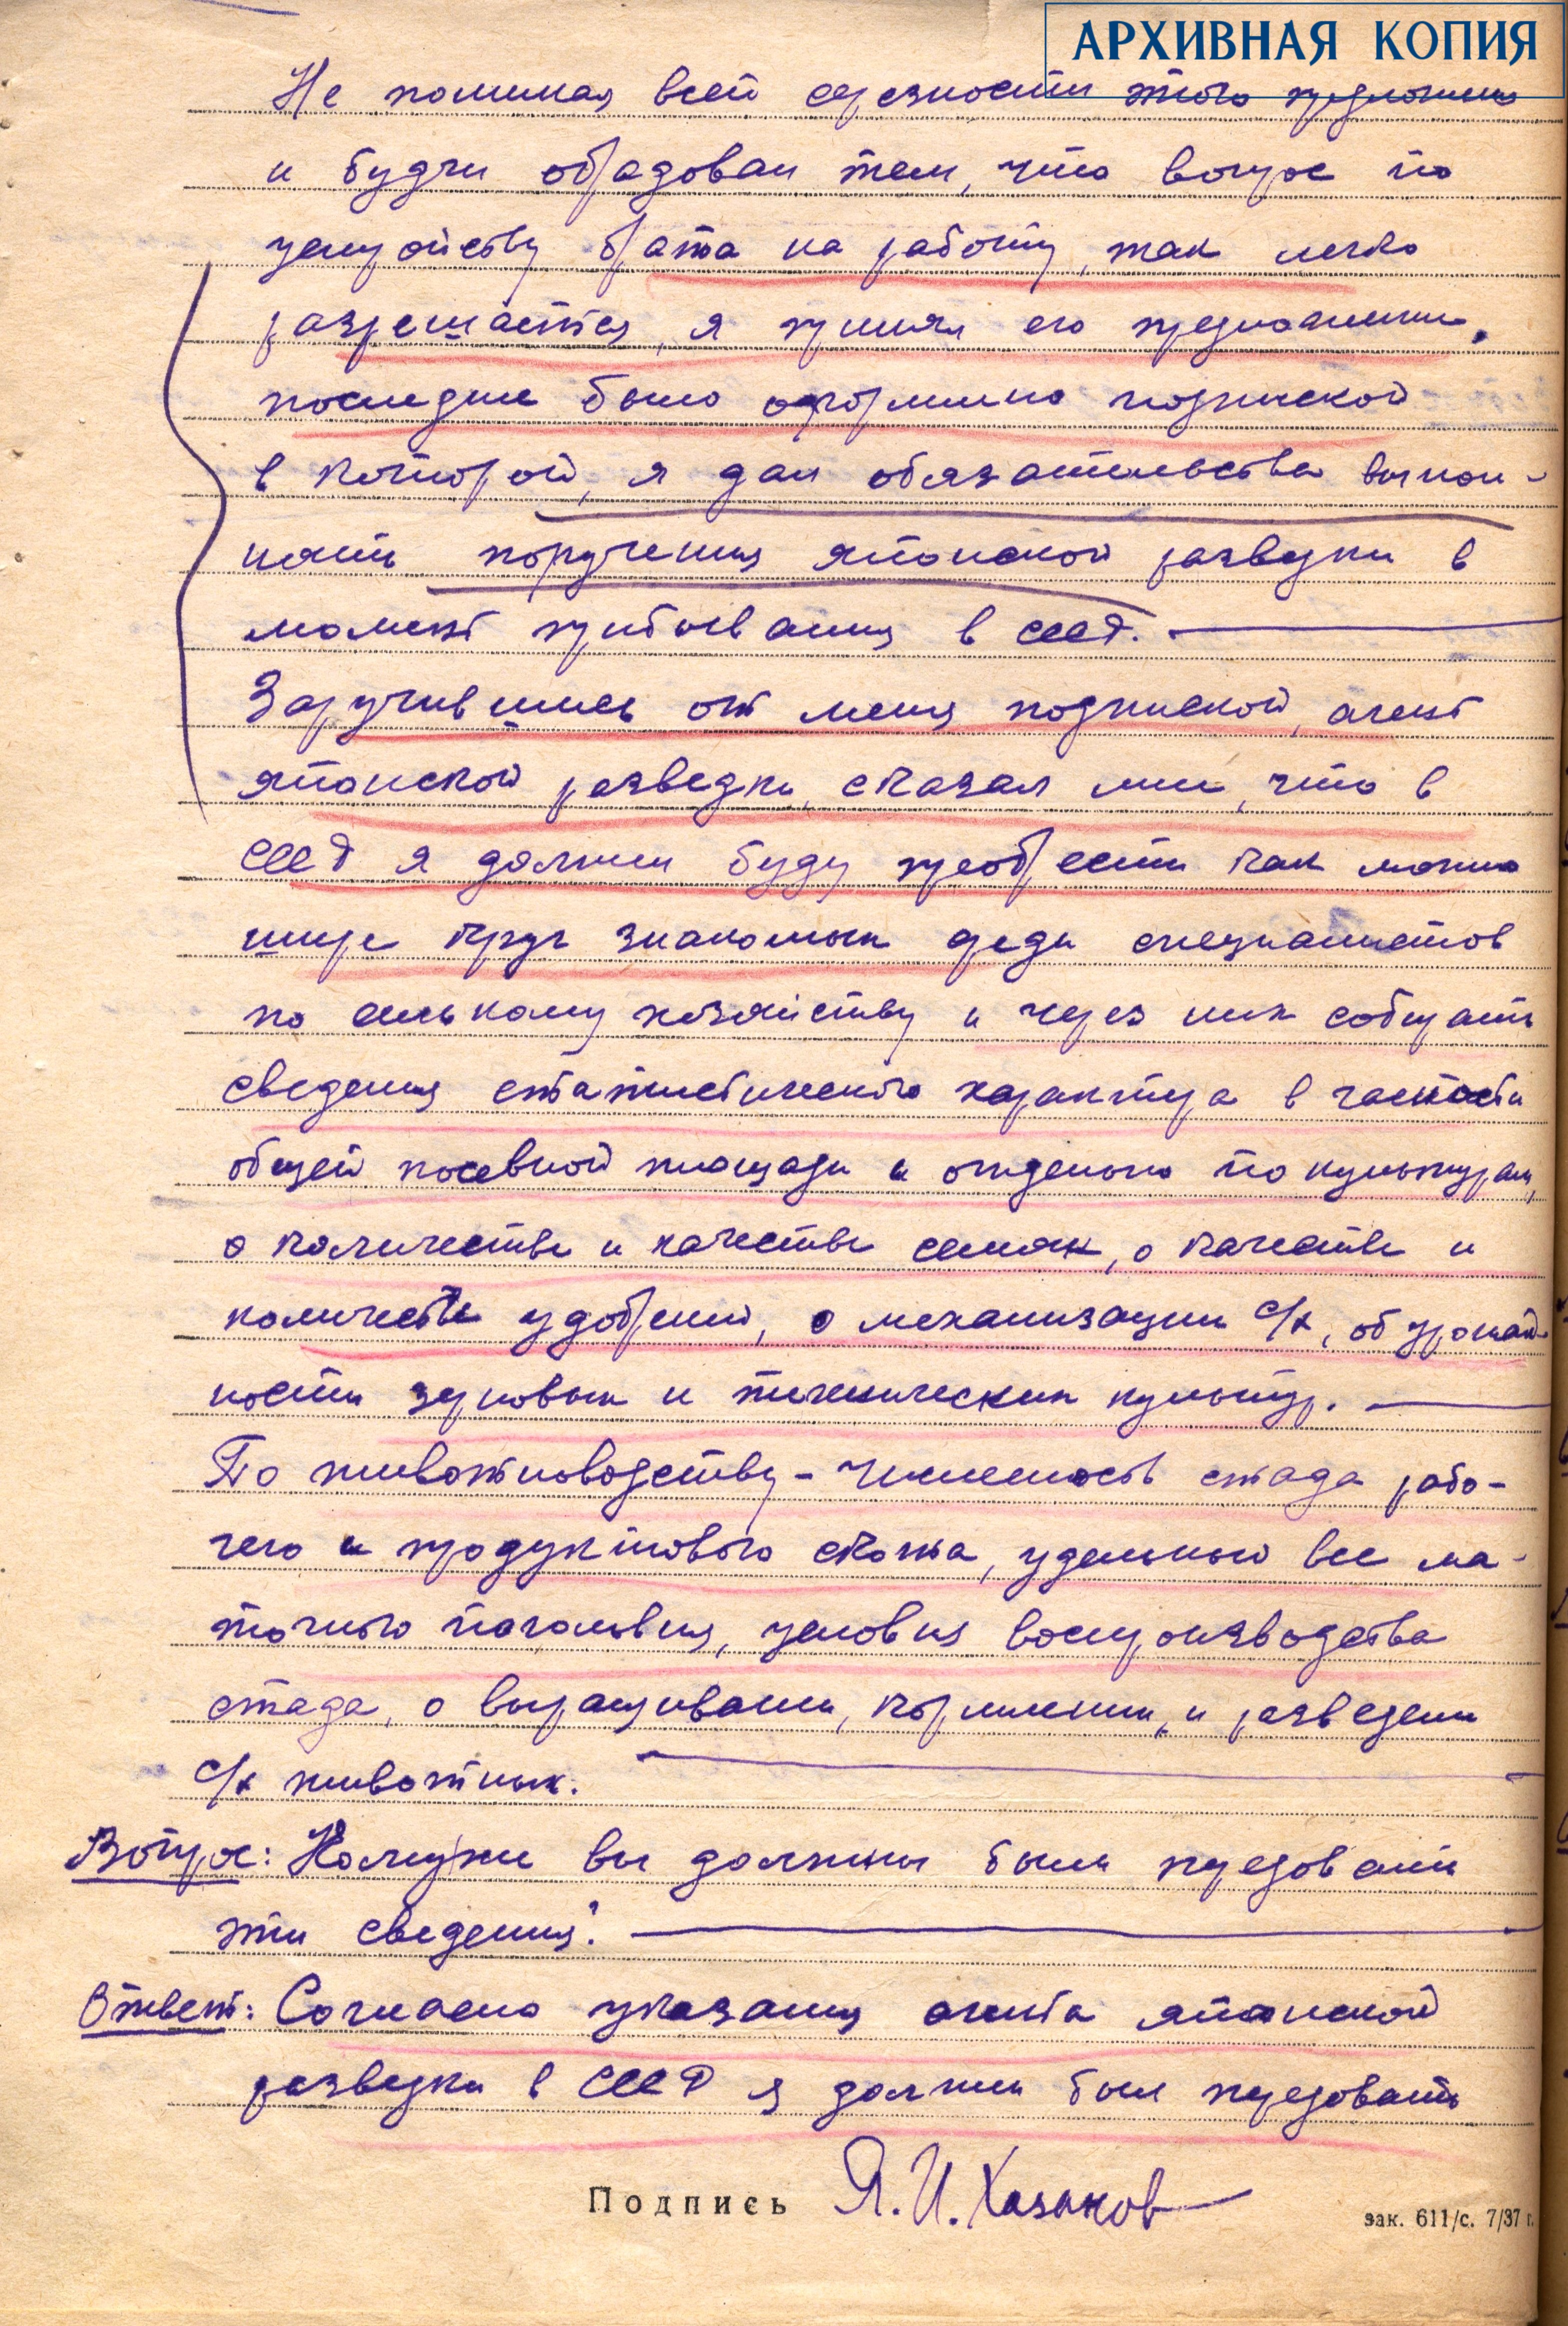 АРХИВНАЯ КОПИЯ
Не понимая всей серезности этого предложения
и будучи обрадован тем, что вопрос по
устройству брата на работу, так легко
разрешается, я принял его предложение,
последнее было оформлено подпиской
в которой, я дал обязательство выпол-
нять поручения японской разведки в
момент пребывания в СССР.
Заручившись от меня подпиской, агент
японской разведки, сказал мне, что в
СССР я должен буду преобрести как можно
шире круг знакомых среди специалистов
по сельскому хозяйству и через них собирать
сведения статистического характера в частности
общей посевной площади и отдельно по культурам,
о количестве и качестве семян, о качестве и
количестве удобрений, о механизации с/х, об урожай-
ности зерновых и технических культур.
По животноводству - численость стада рабо-
чего и продуктового скота, удельный вес ма-
точного поголовья, условия воспроизводства
стада, о выращивании, кормлении, и разведении
с/х животных.
Вопрос: Кому же вы должны были передовать
эти сведения?
Ответ: Согласно указания агента японской
разведки в СССР я должен был передовать
Подпись Я. И. Казаков
зак. 611/с. 7/37 г.